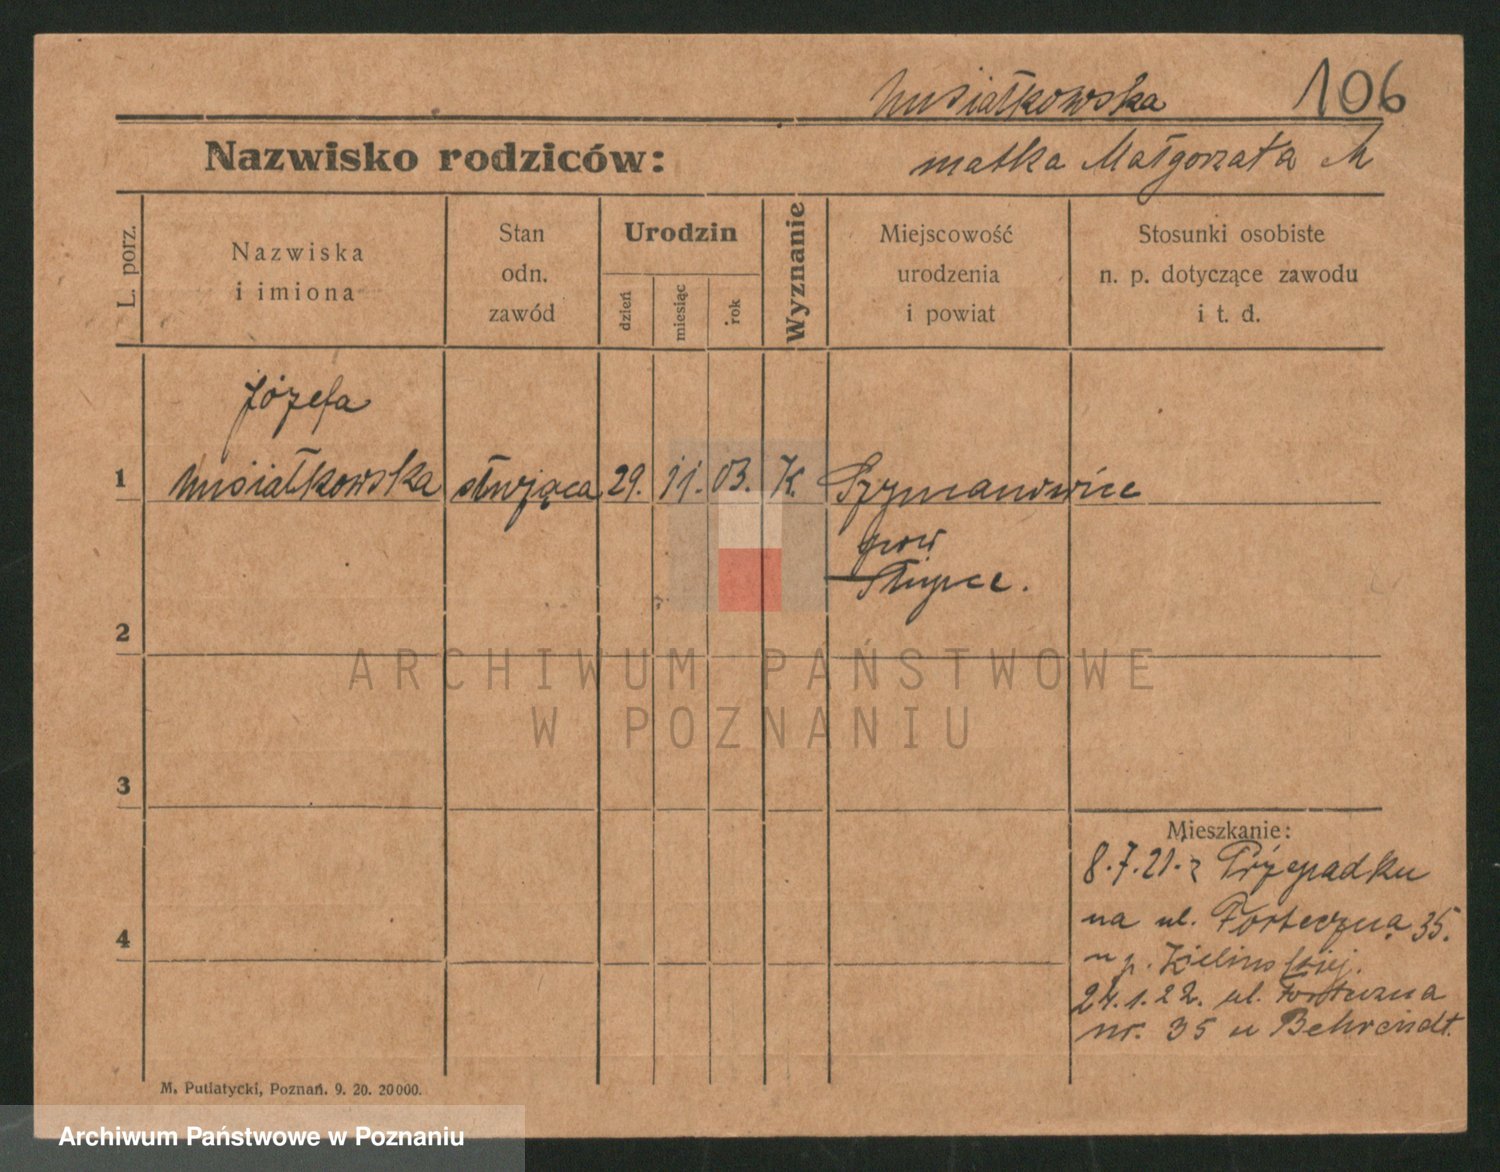 Musiałkowska 106
Nazwisko rodziców: matka Małgorzata M
L. porz.
Nazwiska
i imiona
Stan
odn.
zawód
Urodzin
dzień
miesiąc
rok
Wyznanie
Miejscowość
urodzenia
i powiat
Stosunki osobiste
n. p. dotyczące zawodu
i t. d.
Józefa
1 Musiałkowska służąca 29. 11. 03. K. Szymanowice
pow
Słupce.
2
3
4
Mieszkanie:
8.7.21. z Przepadku
na ul. Forteczna 35.
u p. Kielińskiej.
24.1.22. ul. Forteczna
nr. 35 u Behrendt.
M. Putiatycki, Poznań. 9. 20. 20000.
ARCHIWUM PAŃSTWOWE
W POZNANIU
Archiwum Państwowe w Poznaniu